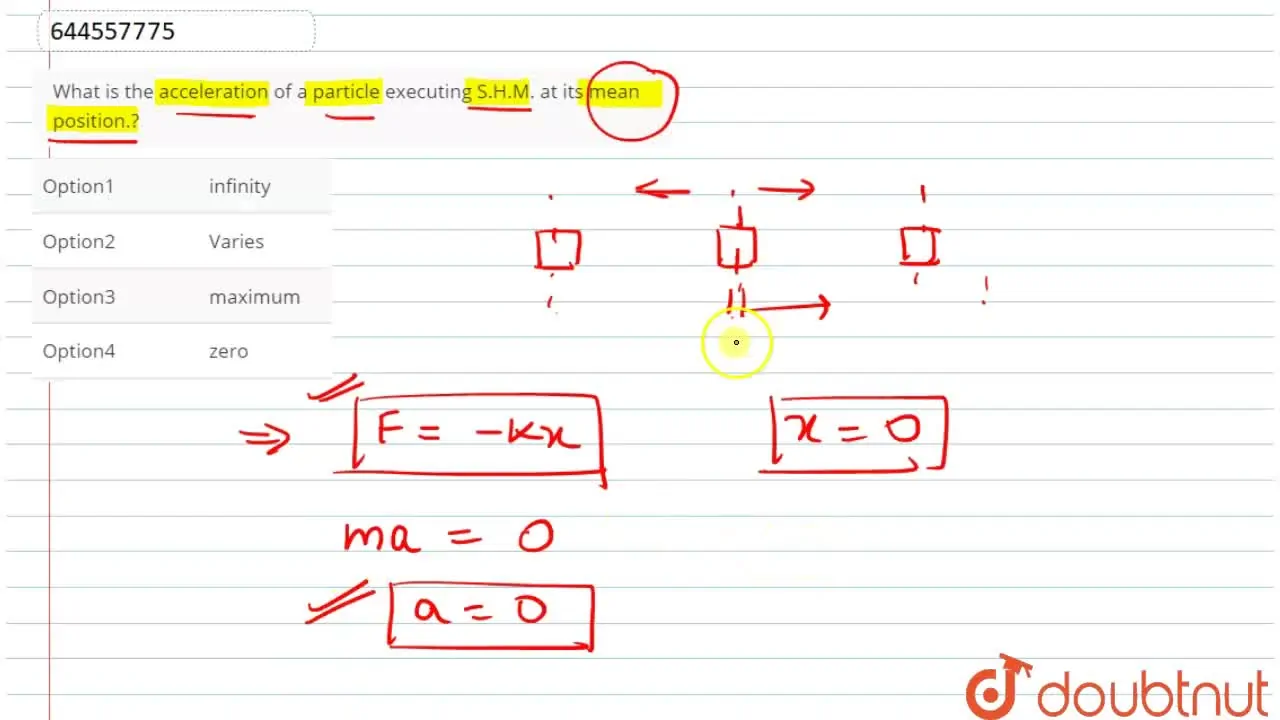 644557775
What is the acceleration of a particle executing S.H.M. at its mean
position.?
Option1 infinity
Option2 Varies
Option3 maximum
Option4 zero
⇒ F = -kx x = 0
ma = 0
a = 0
doubtnut